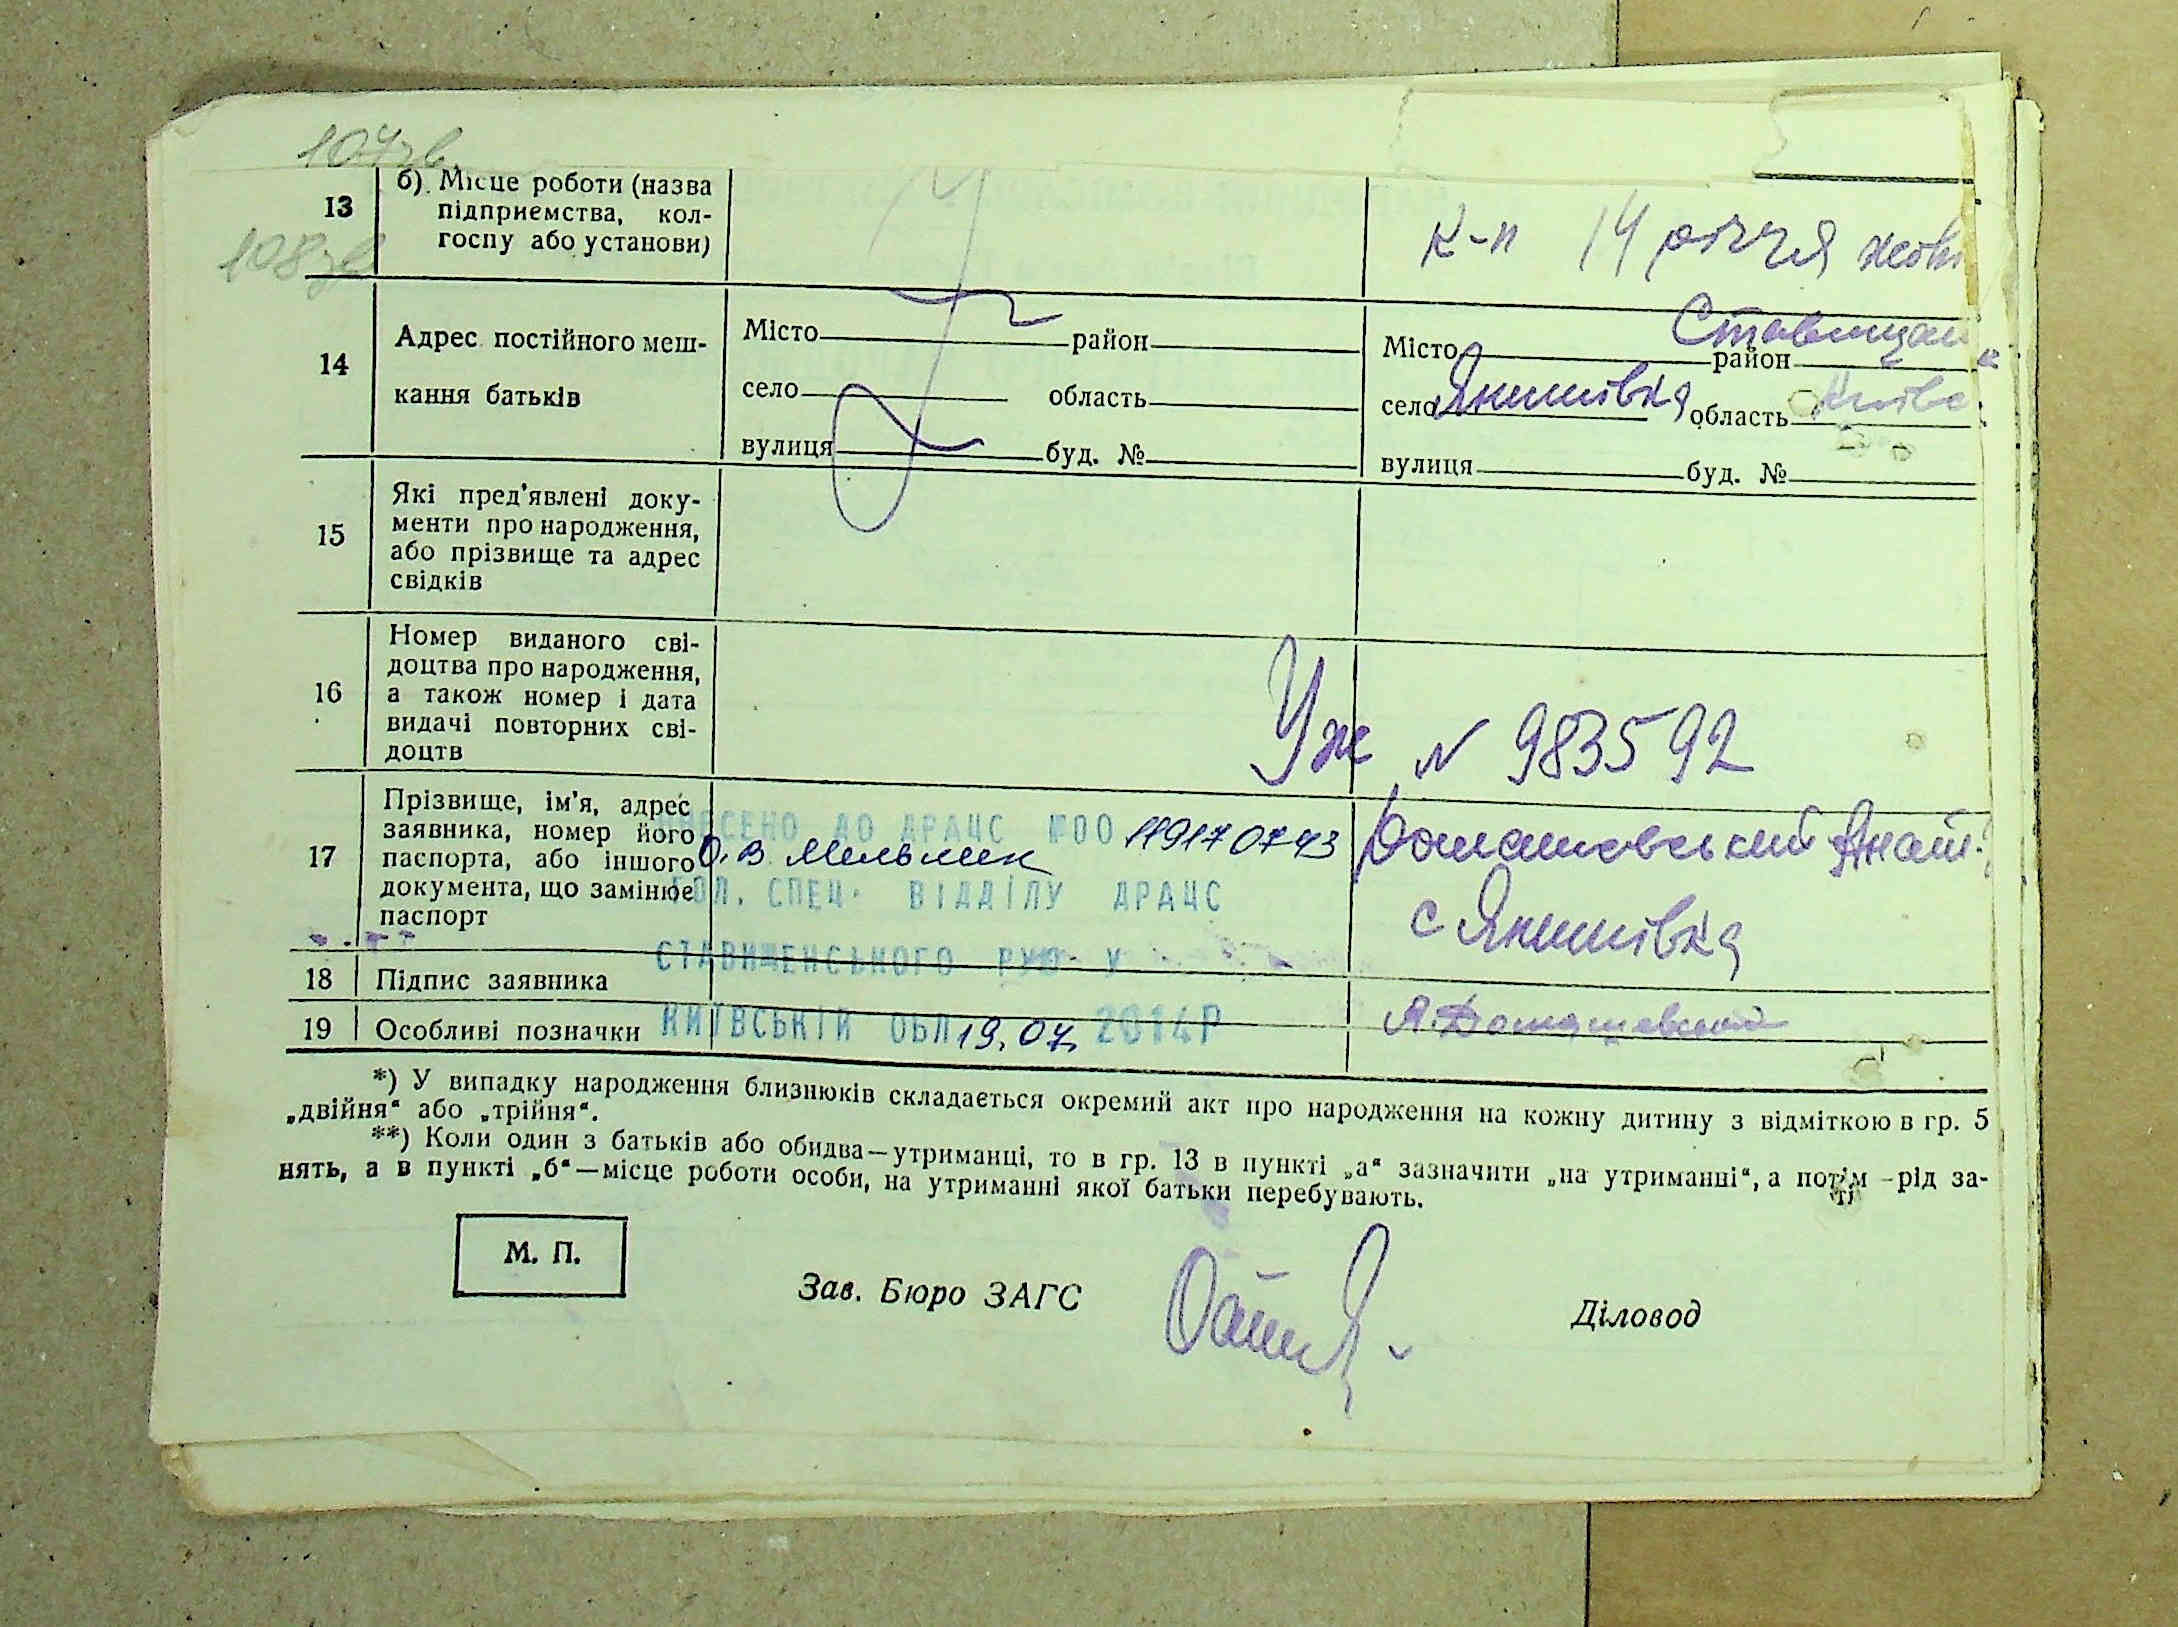 107зв.
108зв
13
б). Місце роботи (назва
підприємства, кол-
госпу або установи)
к-п 14 річчя жовт
14
Адрес постійного меш-
кання батьків
Місто район
село область
вулиця буд. №
Місто район Ставищан
село Янишівка область Київс
вулиця буд. №
15
Які пред'явлені доку-
менти про народження,
або прізвище та адрес
свідків
16
Номер виданого сві-
доцтва про народження,
а також номер і дата
видачі повторних сві-
доцтв
Уж N 983592
17
Прізвище, ім'я, адрес
заявника, номер його
паспорта, або іншого
документа, що замінює
паспорт
ВНЕСЕНО ДО ДРАЦС №00 119170743
О.В Мельник
ГОЛ. СПЕЦ. ВІДДІЛУ ДРАЦС
СТАВИЩЕНСЬКОГО РУЮ У
КИЇВСЬКІЙ ОБЛ 19.07. 2014Р
Домашовський
с Янишівка
18
Підпис заявника
19
Особливі позначки
*) У випадку народження близнюків складається окремий акт про народження на кожну дитину з відміткою в гр. 5
„двійня“ або „трійня“.
**) Коли один з батьків або обидва—утриманці, то в гр. 13 в пункті „а“ зазначити „на утриманні“, а потім —рід за-
нять, а в пункті „б“—місце роботи особи, на утриманні якої батьки перебувають.
М. П.
Зав. Бюро ЗАГС
Діловод